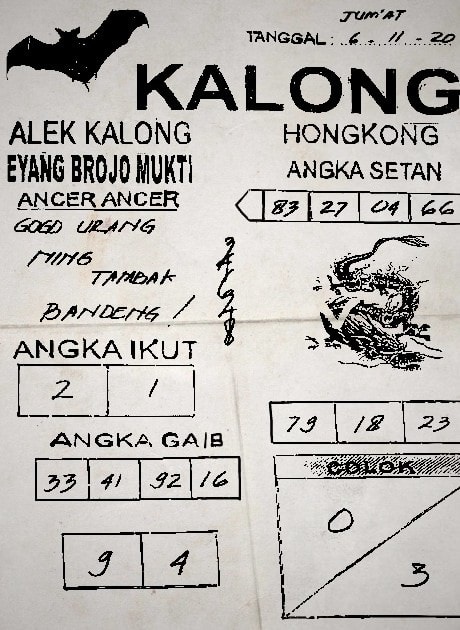 JUM'AT
TANGGAL : 6 - 11 - 20
KALONG
ALEK KALONG
EYANG BROJO MUKTI
ANCER ANCER
GOGO URANG
MING
TAMBAK
BANDENG /
HONGKONG
ANGKA SETAN
83 27 04 66
ANGKA IKUT
2 1
79 18 23
ANGKA GAIB
33 41 92 16
COLOK
0
3
9 4